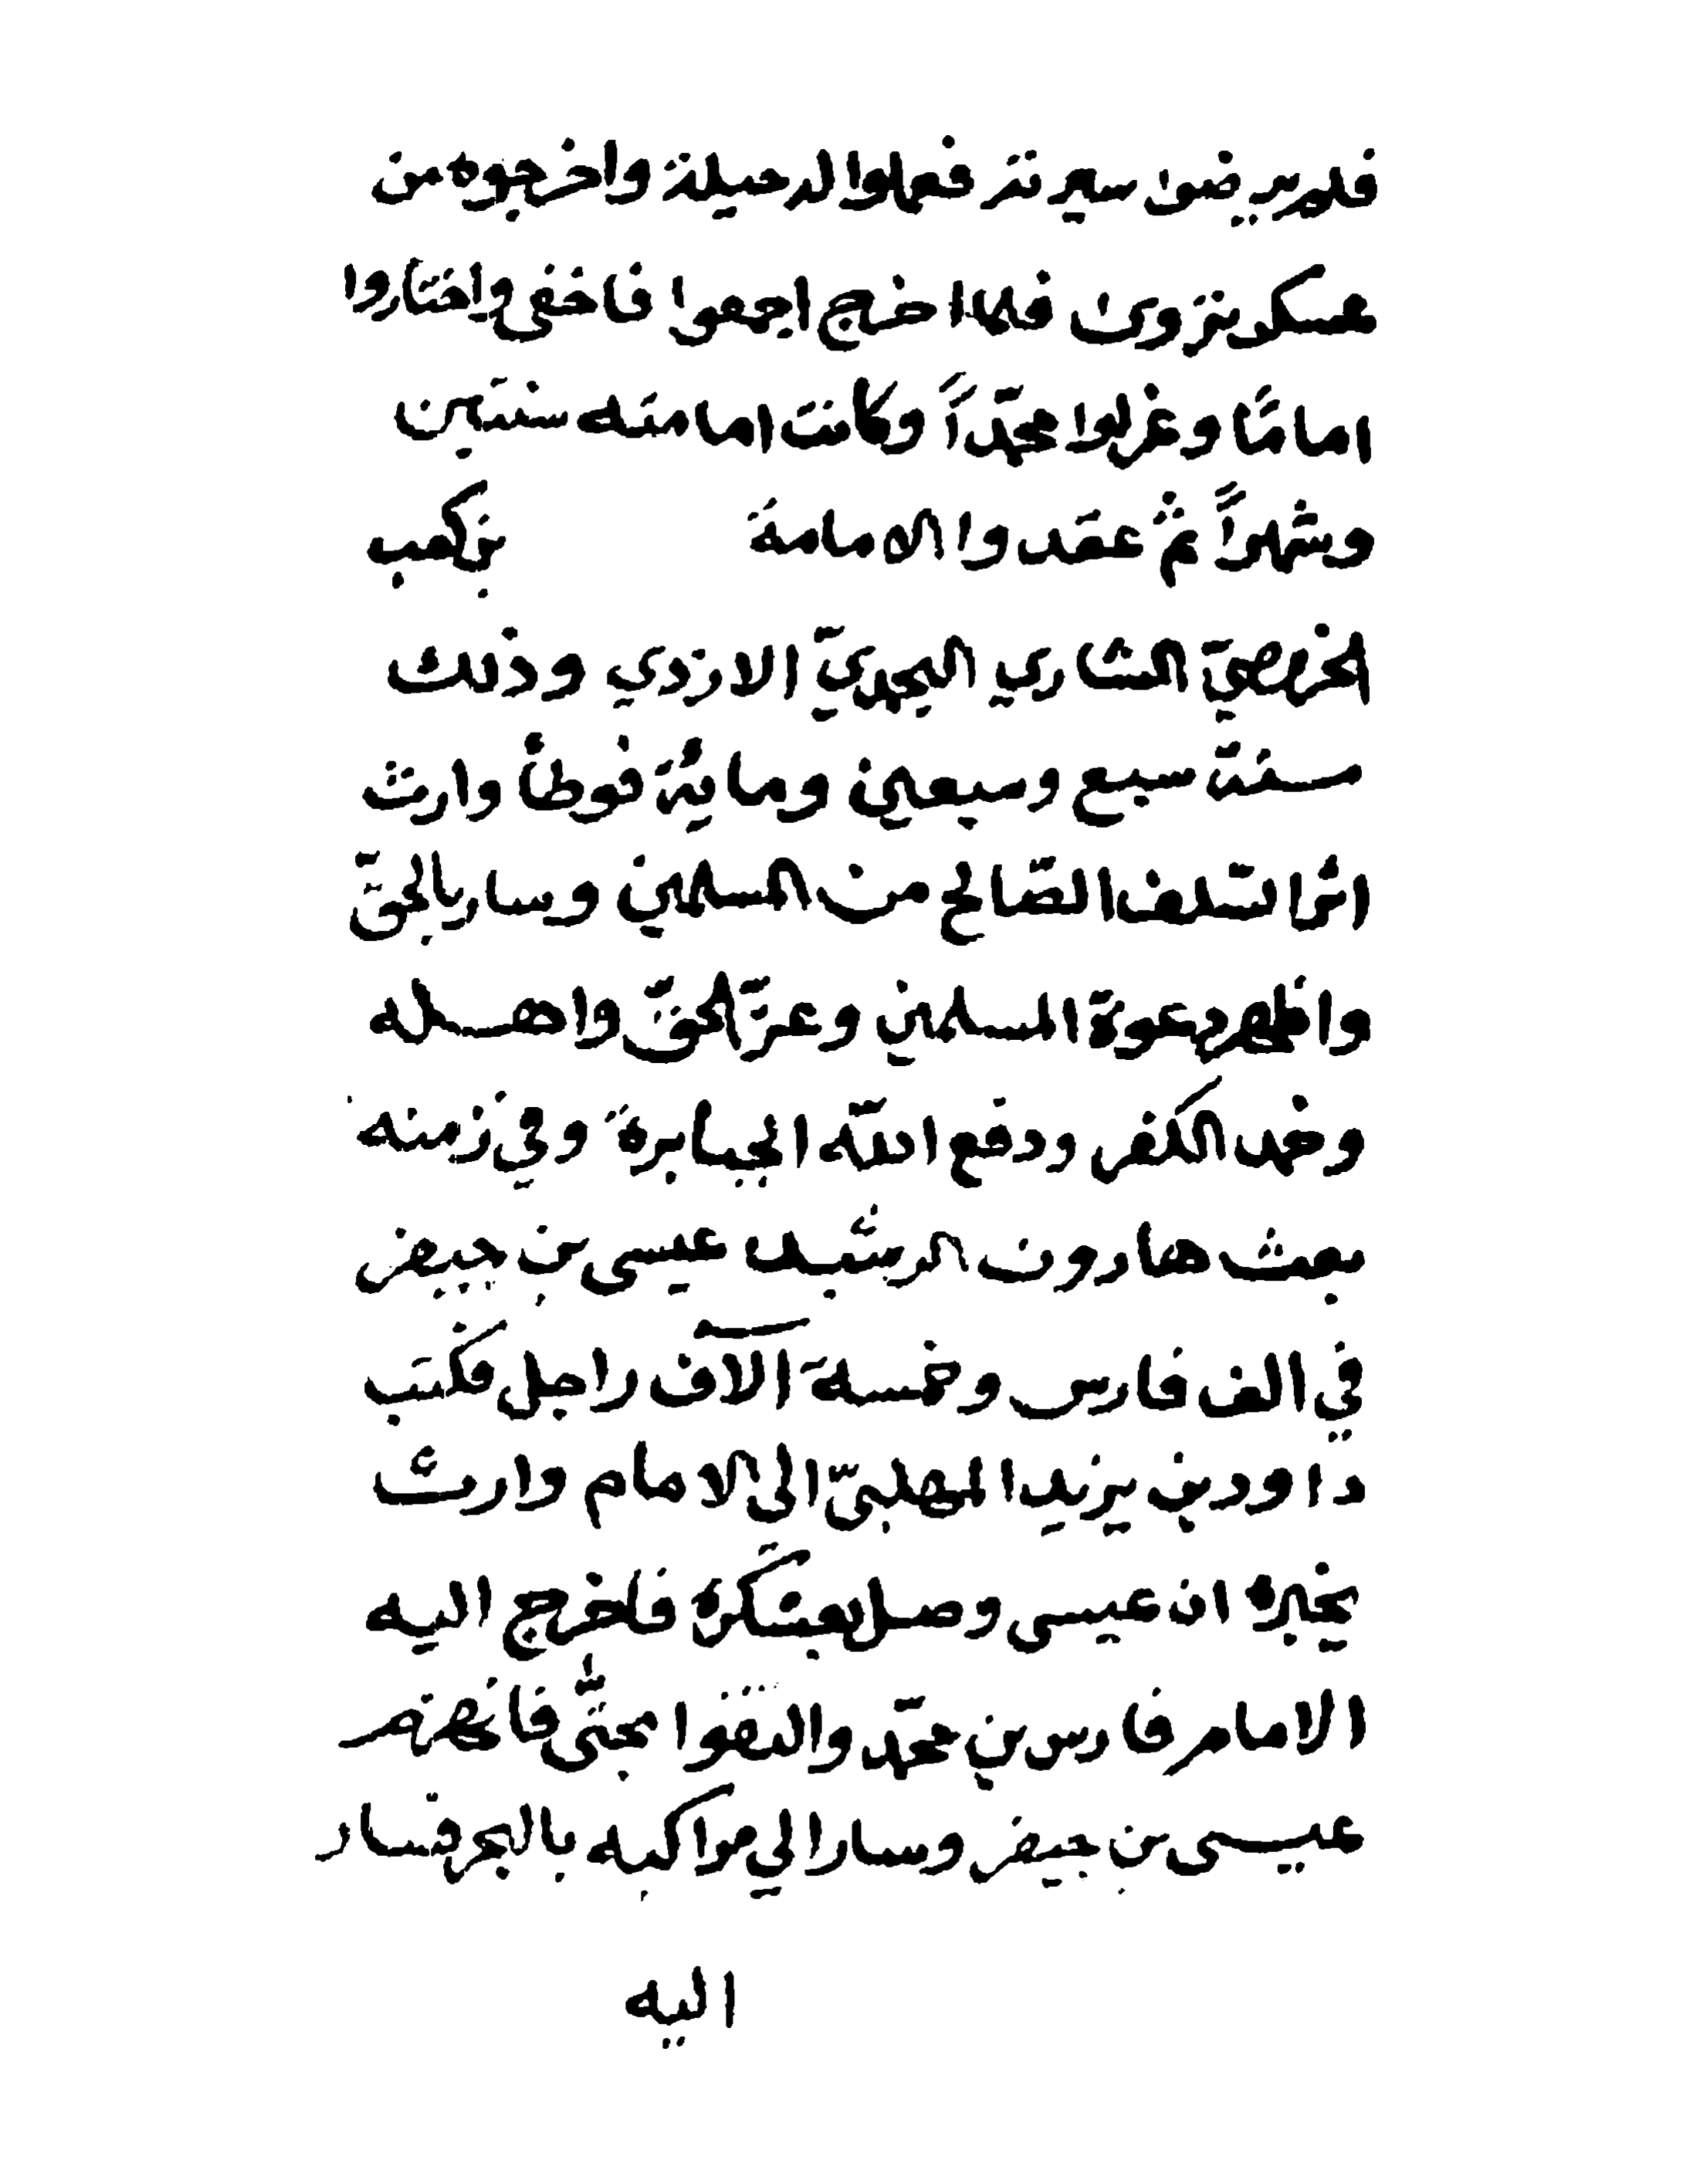 فلم يرضوا سيرته فعملوا له حيلة واخرجوه من
عسكر نزوى فلما اخرج اجمعوا فاختفى واختاروا
اماما وعزلوا محمّداً وكانت امامته سنتين
وشهراً ثمّ عقدوا الامامة بن كعب
الخروصيّ الشاري اليحمديّ الازدي وذلك
سنة سبع وسبعين ومائة فوطأ وارث
اثر السّلف الصّالح من المسلمين وسار بالحقّ
واظهر دعوة المسلمين وعزّ الحقّ واهله
وخمد الكفر ودفع الله الجبابرة وفي زمنه
بعث هارون الرشيد عيسى بن جيفر
في الف فارس وخمسة آلاف راجل فكتب
داود بن يزيد المهلبيّ الى الامام وارث
يخبره ان عيسى وصل بعسكره فاخرج اليه
الامام فارس بن محمّد والتقوا بحتّى فانهزم
عيسى بن جيفر وسار الي مراكبه بالبحر فسار
اليه